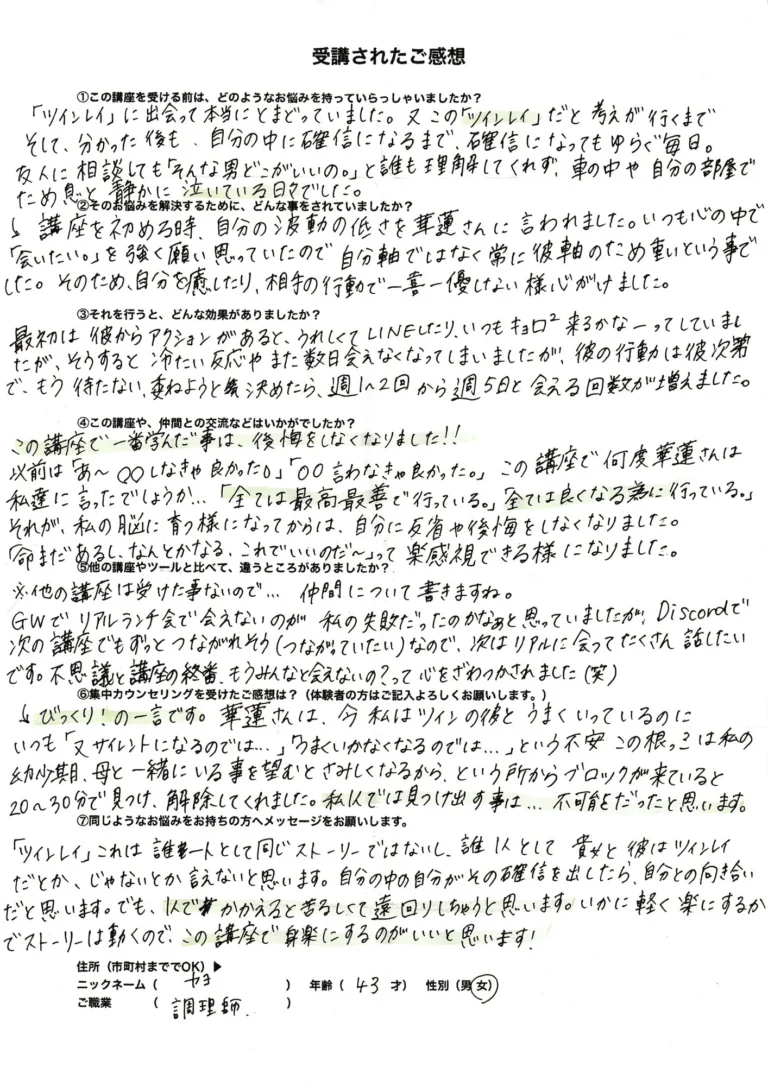 受講されたご感想
①この講座を受ける前は、どのようなお悩みを持っていらっしゃいましたか？
「ツインレイ」に出会って本当にとまどっていました。又この「ツインレイ」だと考えが行くまで
そして、分かった後も、自分の中に確信になるまで、確信になってもゆらぐ毎日。
友人に相談しても「そんな男どこがいいの。」と誰も理解してくれず、車の中や自分の部屋で
ため息と静かに泣いている日々でした。
②そのお悩みを解決するために、どんな事をされていましたか？
↳ 講座を初める時、自分の波動の低さを華蓮さんに言われました。いつも心の中で
「会いたい。」を強く願い思っていたので自分軸ではなく常に彼軸のため重いという事で
した。そのため、自分を癒したり、相手の行動で一喜一優しない様心がけました。
③それを行うと、どんな効果がありましたか？
最初は彼からアクションがあると、うれしくてLINEしたり、いつもキョロ²来るかなーってしていまし
たが、そうすると冷たい反応やまた数日会えなくなってしまいましたが、彼の行動は彼次第
で、もう待たない、委ねようと決めたら、週1〜2回から週5日と会える回数が増えました。
④この講座や、仲間との交流などはいかがでしたか？
この講座で一番学んだ事は、後悔をしなくなりました!!
以前は「あ〜〇〇しなきゃ良かった。」「〇〇言わなきゃ良かった。」この講座で何度華蓮さんは
私達に言ったでしょうか…「全ては最高最善で行っている。」「全ては良くなる為に行っている。」
それが、私の脳に育つ様になってからは、自分に反省や後悔をしなくなりました。
「命まだあるし、なんとかなる、これでいいのだ〜」って楽感視できる様になりました。
⑤他の講座やツールと比べて、違うところがありましたか？
※他の講座は受けた事ないので… 仲間について書きますね。
GWでリアルランチ会で会えないのが私の失敗だったのかなぁと思っていましたが、Discordで
次の講座でもずっとつながれそう(つながっていたい)なので、次はリアルに会ってたくさん話したい
です。不思議と講座の終番、もうみんなと会えないの？って心をざわつかされました(笑)
⑥集中カウンセリングを受けたご感想は？（体験者の方はご記入よろしくお願いします。）
↳ びっくり！の一言です。華蓮さんは、今私はツインの彼とうまくいっているのに
いつも「又サイレントになるのでは…」「うまくいかなくなるのでは…」という不安この根っこは私の
幼少期、母と一緒にいる事を望むとさみしくなるから、という所からブロックが来ていると
20〜30分で見つけ、解除してくれました。私1人では見つけ出す事は…不可能だったと思います。
⑦同じようなお悩みをお持ちの方へメッセージをお願いします。
「ツインレイ」これは誰一人として同じストーリーではないし、誰1人として貴女と彼はツインレイ
だとか、じゃないとか言えないと思います。自分の中の自分がその確信を出したら、自分との向き合い
だと思います。でも、1人でかかえると苦るしくて遠回りしちゃうと思います。いかに軽く楽にするか
でストーリーは動くので、この講座で身楽にするのがいいと思います!
住所（市町村まででOK）▶
ニックネーム（ カヨ ） 年齢（ 43 才） 性別（男・女）
ご職業 （ 調理師. ）